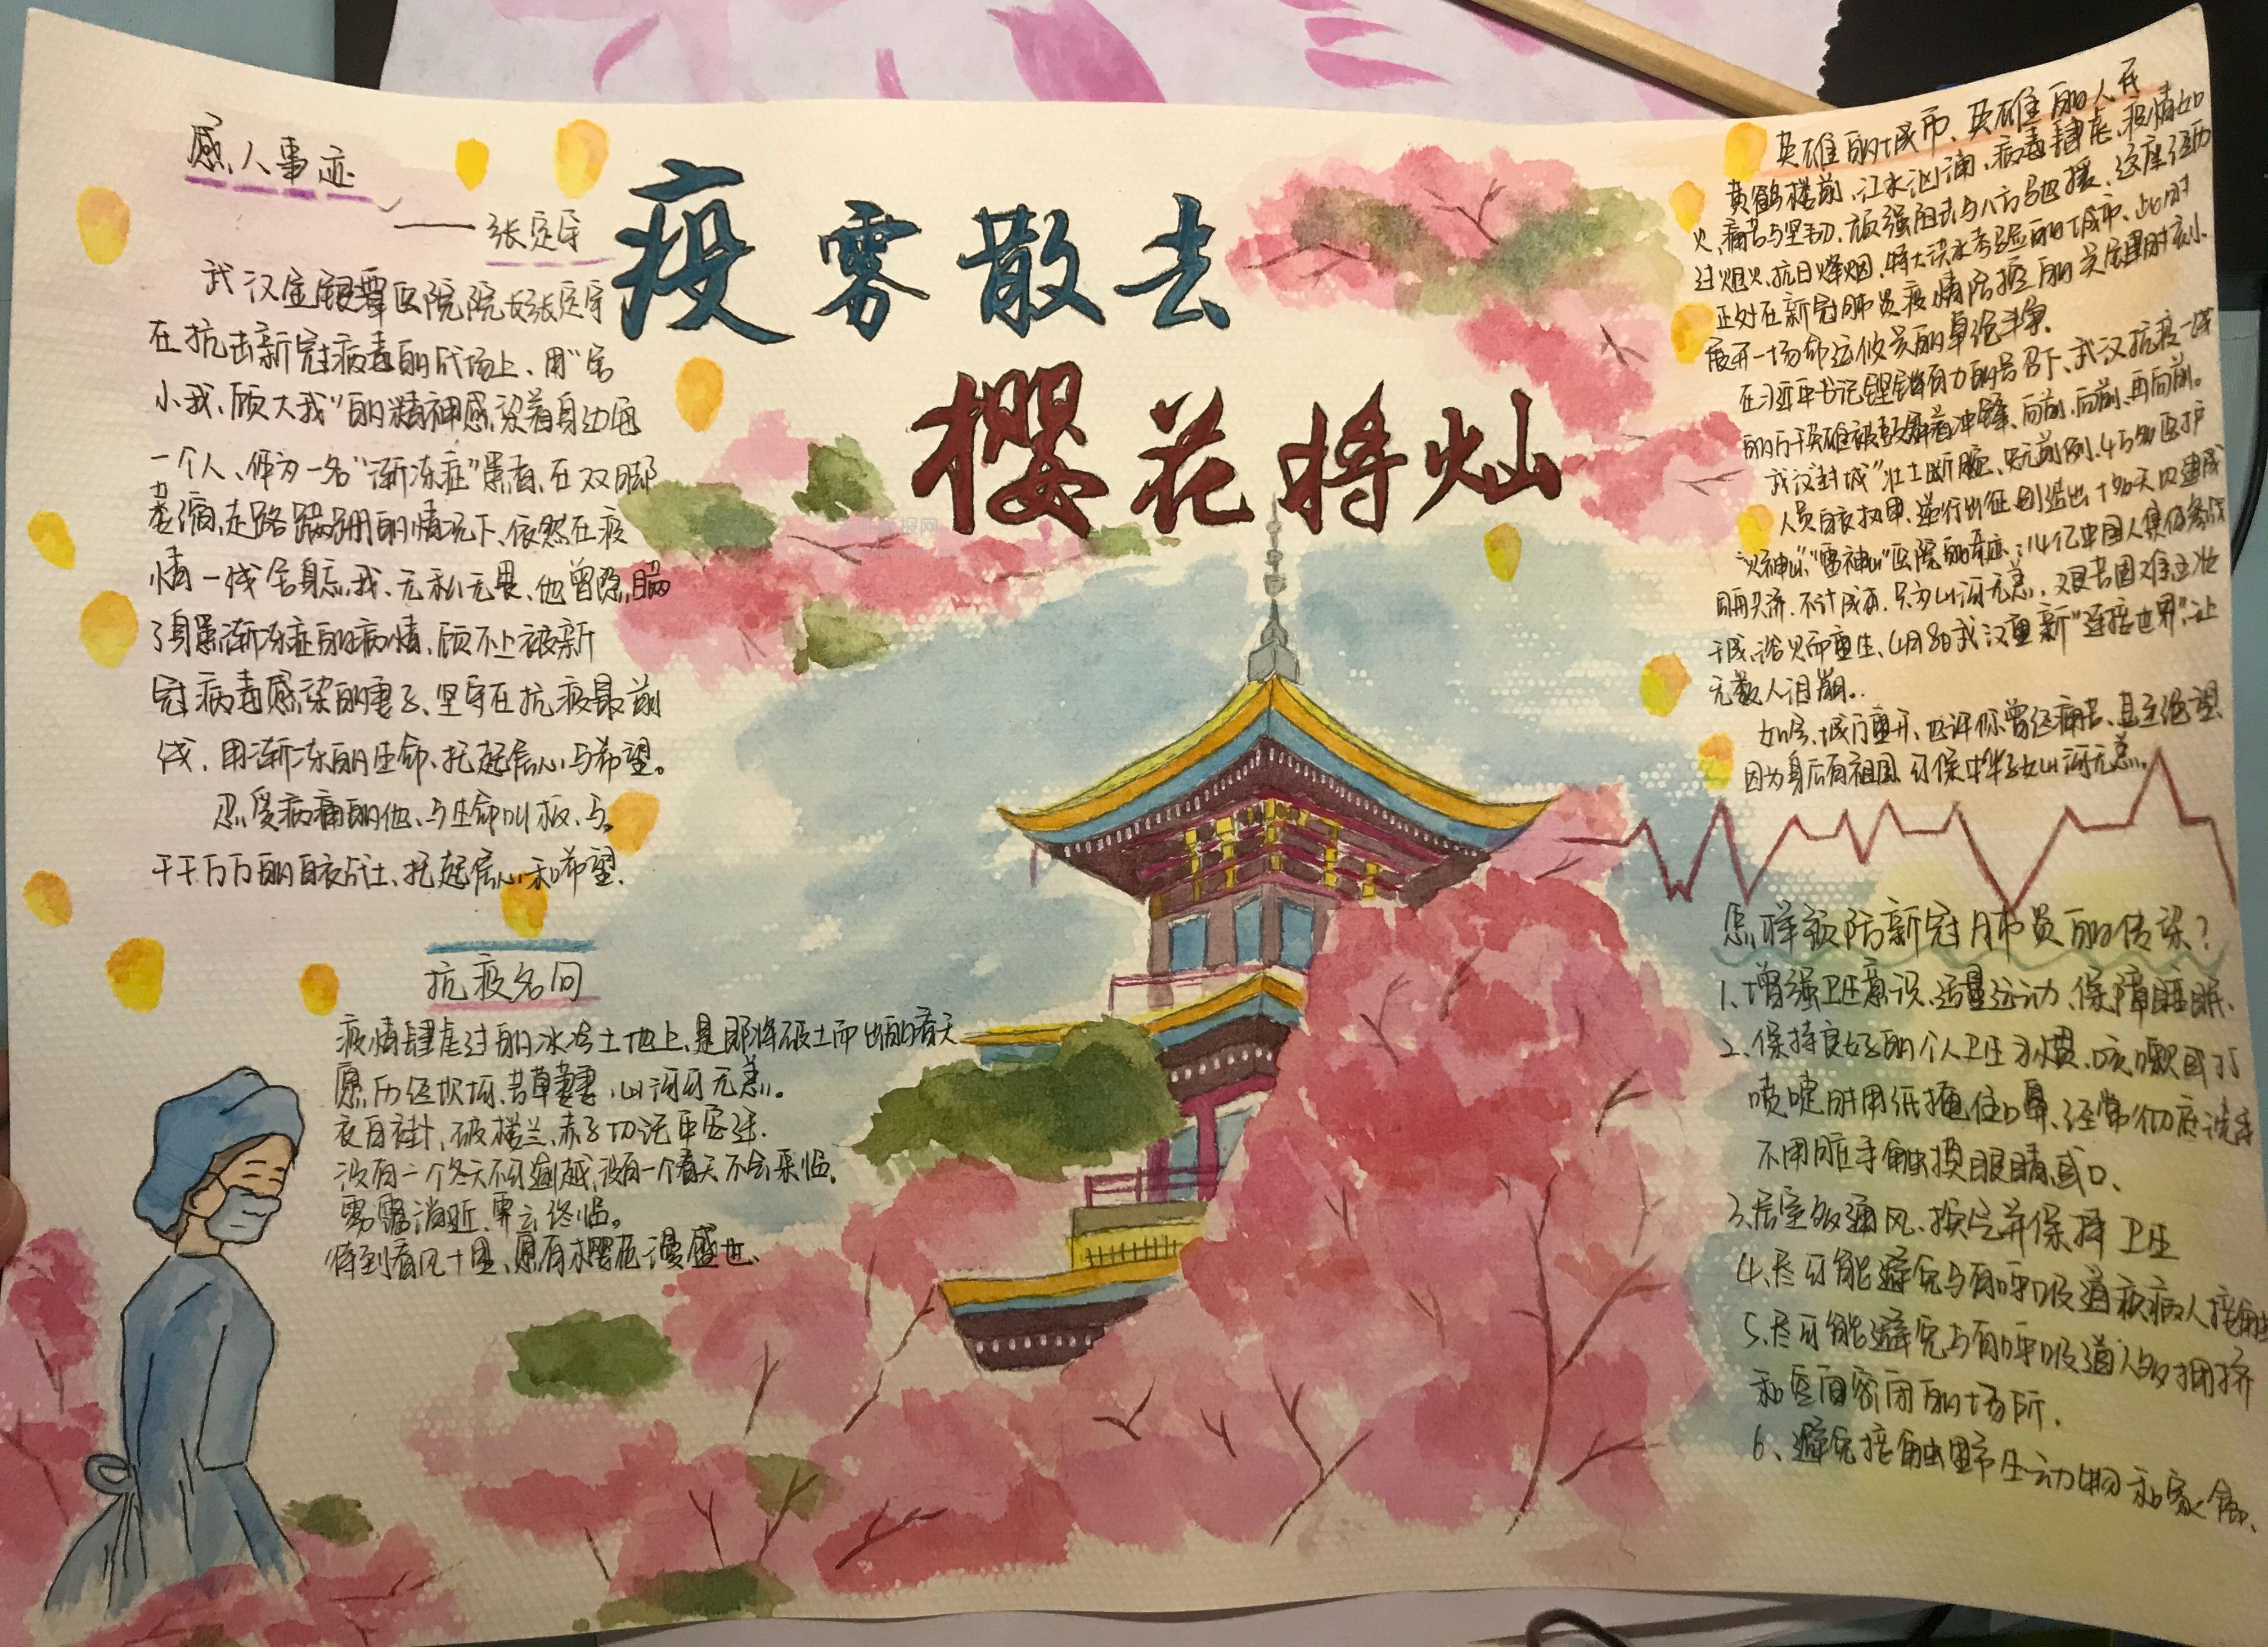 疫雾散去
樱花将灿
感人事迹
——张定宇
武汉金银潭医院院长张定宇
在抗击新冠病毒的战场上、用“舍
小我、顾大我”的精神感染着身边每
一个人、作为一名“渐冻症”患者、在双脚
萎缩,走路蹒跚的情况下、依然在疫
情一线舍身忘我、无私无畏、他曾隐瞒
了身患渐冻症的病情、顾不上被新
冠病毒感染的妻子、坚守在抗疫最前
线、用渐冻的生命、托起信心与希望。
忍受病痛的他、与生命叫板、与
千千万万的白衣战士、托起信心和希望.
抗疫名句
疫情肆虐过的冰冷土地上、是即将破土而出的春天
愿历经坎坷、芳草萋萋,山河可无恙。
没有一个冬天不可逾越,没有一个春天不会来临。
待到春风十里、愿有樱花漫盛世、
英雄的城市、英雄的人民
黄鹤楼前、江水汹涌、病毒肆虐、疫情如
火、痛苦与坚韧、顽强阻击与八方驰援、这座经历
过烟火、抗日烽烟、特大洪水考验的城市、此时
正处在新冠肺炎疫情防控的关键时刻、
展开一场命运攸关的卓绝斗争.
在习近平书记铿锵有力的号召下、武汉抗疫一线
武汉封城“壮士断腕、史无前例、4万多医护
人员白衣执甲、逆行出征、创造出十多天内建成
“火神山”、“雷神山”医院的奇迹;14亿中国人
不计成本、只为山河无恙、艰苦困难玉汝
于成、浴火而重生、4月8日武汉重新“连接世界”、让
无数人泪崩..
如今、城门重开、也许你曾经痛苦、甚至绝望
因为身后有祖国、可保中华子女山河无恙。
怎样预防新冠肺炎的传染?
1.增强卫生意识、适量运动、保障睡眠.
2、保持良好的个人卫生习惯、咳嗽或打
喷嚏时用纸掩住口鼻、经常彻底洗手
不用脏手触摸眼睛或口、
3、居室多通风、换气并保持卫生
4、尽可能避免与有呼吸道疾病人接触
5、尽可能避免与有呼吸道人多拥挤
和空间密闭的场所.
6、避免接触野生动物和家禽、